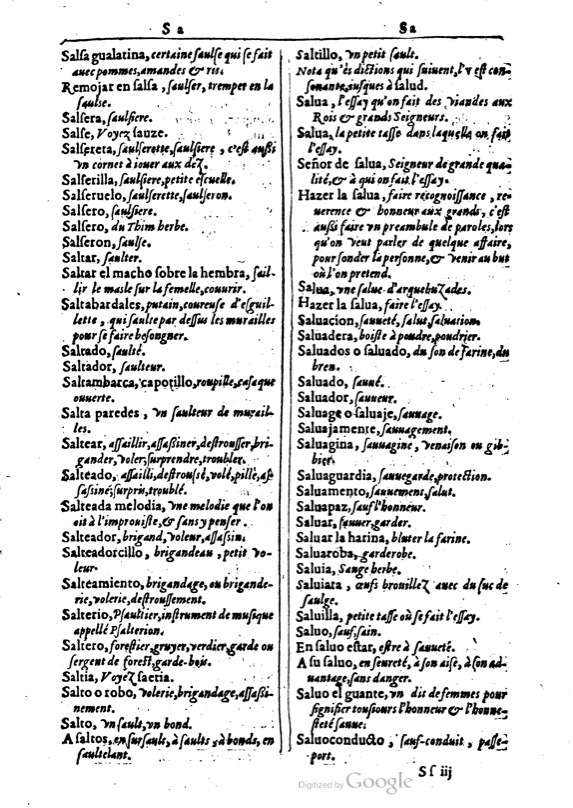 S a
Salsa gualatina, certaine saulse qui se fait
auec pommes, amandes & ris.
Remojar en salsa, saulser, tremper en la
saulse.
Salsera, saulsiere.
Salse, Voyez sauze.
Salsereta, saulserette, saulsiere, c'est aussi
vn cornet à iouer aux dez.
Salserilla, saulsiere, petite escuelle.
Salseruelo, saulserette, saulseron.
Salsero, saulsiere.
Salsero, du Thim herbe.
Salseron, saulse.
Saltar, saulter.
Saltar el macho sobre la hembra, sail-
lir le masle sur la femelle, couurir.
Saltabardales, putain, coureuse d'esguil-
lette, qui saulte par dessus les murailles
pour se faire besongner.
Saltado, saulté.
Saltador, saulteur.
Saltambarca, capotillo, roupille, casaque
ouuerte.
Salta paredes, vn saulteur de murail-
les.
Saltear, assaillir, assaßiner, destrousser, bri-
gander, voler, surprendre, troubler.
Salteado, assailli, destroussé, volé, pillé, as-
sassiné, surpris, troublé.
Salteada melodia, vne melodie que l'on
oit à l'improuiste, & sans y penser.
Salteador, brigand, voleur, assassin.
Salteadorcillo, brigandeau, petit vo-
leur.
Salteamiento, brigandage, ou brigande-
rie, volerie, destroussement.
Salterio, Psaultier, instrument de musique
appellé Psalterion.
Saltero, forestier, gruyer, verdier, garde ou
sergent de forest, garde-bois.
Saltia, Voyez saetia.
Salto o robo, volerie, brigandage, assaßi-
nement.
Salto, vn sault, vn bond.
A saltos, en sursault, à saults, à bonds, en
saultelant.
Sa
Saltillo, vn petit sault.
Nota qu'és dictions qui suiuent, l'v est con-
sonante, iusques à salud.
Salua, l'essay qu'on fait des viandes aux
Rois & grands Seigneurs.
Salua, la petite tasse dans laquelle on fait
l'essay.
Señor de salua, Seigneur de grande qua-
lité, & à qui on fait l'essay.
Hazer la salua, faire recognoissance, re-
uerence & honneur aux grands, c'est
aussi faire vn preambule de paroles, lors
qu'on veut parler de quelque affaire,
pour sonder la personne, & venir au but
où l'on pretend.
Salua, vne salue d'arquebuzades.
Hazer la salua, faire l'essay.
Saluacion, sauueté, salut, saluation.
Saluadera, boiste à poudre, poudrier.
Saluados o saluado, du son de farine, du
bren.
Saluado, sauué.
Saluador, sauueur.
Saluage o saluaje, sauuage.
Saluajamente, sauuagement.
Saluagina, sauuagine, venaison ou gib-
bier.
Saluaguardia, sauuegarde, protection.
Saluamento, sauuement, salut.
Saluapaz, sauf l'honneur.
Saluar, sauuer, garder.
Saluar la harina, bluter la farine.
Saluaroba, garderobe.
Saluia, Sauge herbe.
Saluiata, œufs brouillez auec du suc de
saulge.
Saluilla, petite tasse où se fait l'essay.
Saluo, sauf, sain.
En saluo estar, estre à sauueté.
A su saluo, en seureté, à son aise, à son ad-
uantage, sans danger.
Saluo el guante, vn dit de femmes pour
signifier tousiours l'honneur & l'honne-
steté sauue.
Saluoconducto, sauf-conduit, passe-
port.
Sſ iij
Digitized by Google